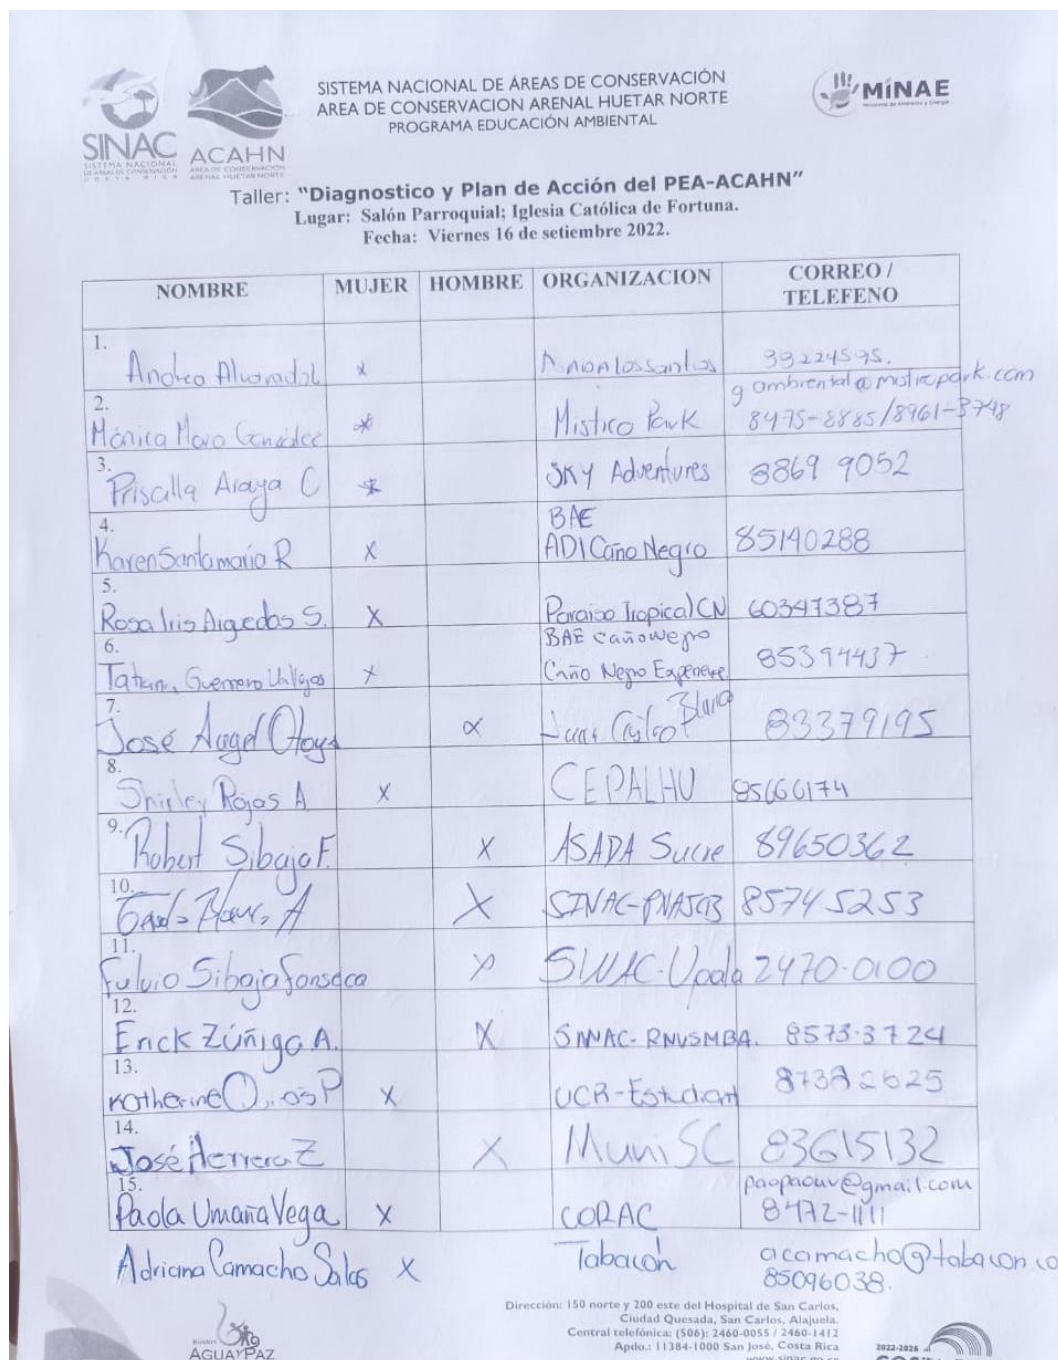 SISTEMA NACIONAL DE ÁREAS DE CONSERVACIÓN
AREA DE CONSERVACION ARENAL HUETAR NORTE
PROGRAMA EDUCACIÓN AMBIENTAL
SINAC
SISTEMA NACIONAL
DE ÁREAS DE CONSERVACIÓN
COSTA RICA
ACAHN
ÁREA DE CONSERVACIÓN
ARENAL HUETAR NORTE
MINAE
Ministerio de Ambiente y Energía
Taller: "Diagnostico y Plan de Acción del PEA-ACAHN"
Lugar: Salón Parroquial; Iglesia Católica de Fortuna.
Fecha: Viernes 16 de setiembre 2022.
NOMBRE MUJER HOMBRE ORGANIZACION CORREO / TELEFENO
1. x
2. Mónica x Mistico Park 8475-8885/8961-3748
3. Priscilla Araya C x Sky Adventures 8869 9052
4. Karen Santamaría R X BAE
ADI Caño Negro 85140288
5. Rosa Iris Arguedas S. X Paraiso Tropical CN 60347387
6. Guerrero x BAE Caño Negro
Caño Negro 85394437
7. José Angel x Blanco 83379195
8. Shirley Rojas A. X CEPALHU 85666174
9. Robert Sibaja F. X ASADA Sucre 89650362
10. X 85745253
11. Fulvio Sibaja Fonseca X SINAC-Upala 2470-0100
12. Erick Zúñiga A. X SINAC-RNVSMBA. 8573-3724
13. Katherine P X UCR-Estudiant
14. José Herrera Z X Muni SC 83615132
15. Paola Umaña Vega X CORAC paopaouv@gmail.com
8472-1111
Adriana Camacho Salas X Tabacón acamacho@tabacon.co
85096038.
AGUA Y PAZ
Dirección: 150 norte y 200 este del Hospital de San Carlos,
Ciudad Quesada, San Carlos, Alajuela.
Central telefónica: (506): 2460-0055 / 2460-1412
Apdo.: 11384-1000 San José, Costa Rica
2022-2026